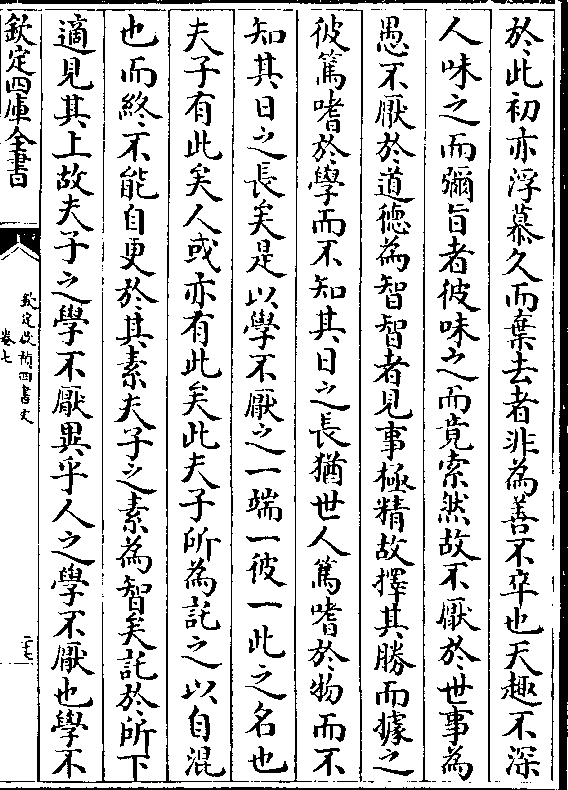 於此初亦浮慕久而棄去者非為善不卒也天趣不深
人味之而彌旨者彼味之而竟索然故不厭於世事為
愚不厭於道德為智智者見事極精故擇其勝而據之
彼篤嗜於學而不知其日之長猶世人篤嗜於物而不
知其日之長矣是以學不厭之一端一彼一此之名也
夫子有此矣人或亦有此矣此夫子所為託之以自混
也而終不能自更於其素夫子之素為智矣託於所下
適見其上故夫子之學不厭異乎人之學不厭也學不
欽定四庫全書
欽定啟禎四書文
卷七